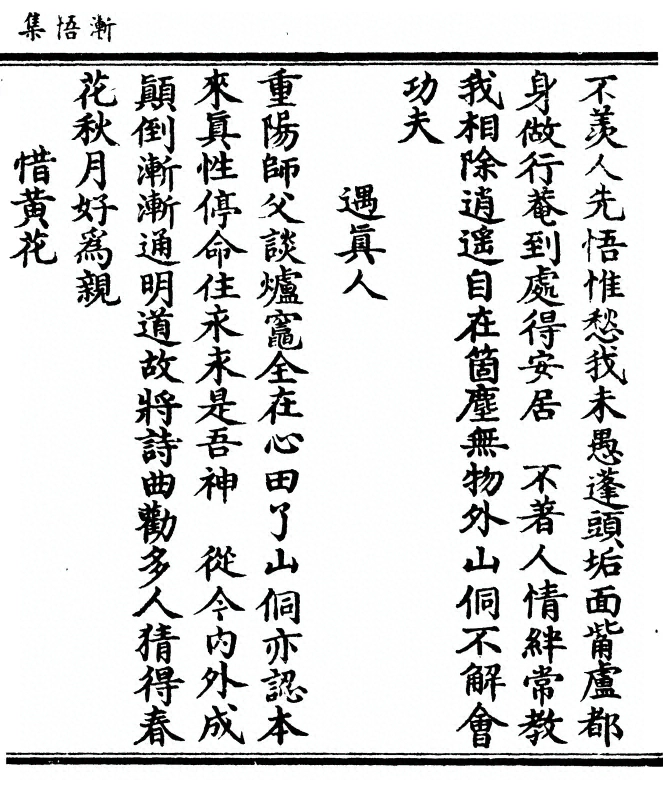 漸悟集
不羨人先悟惟愁我未愚蓬頭垢面觜盧都
身做行菴到處得安居　不著人情絆常教
我相除逍遥自在箇塵無物外山侗不解會
功夫
遇眞人
重陽師父談爐竈全在心田了山侗亦認本
來眞性停命住求來是吾神　從今内外成
顚倒漸漸通明道故將詩曲勸多人猜得春
花秋月好爲親
惜黄花